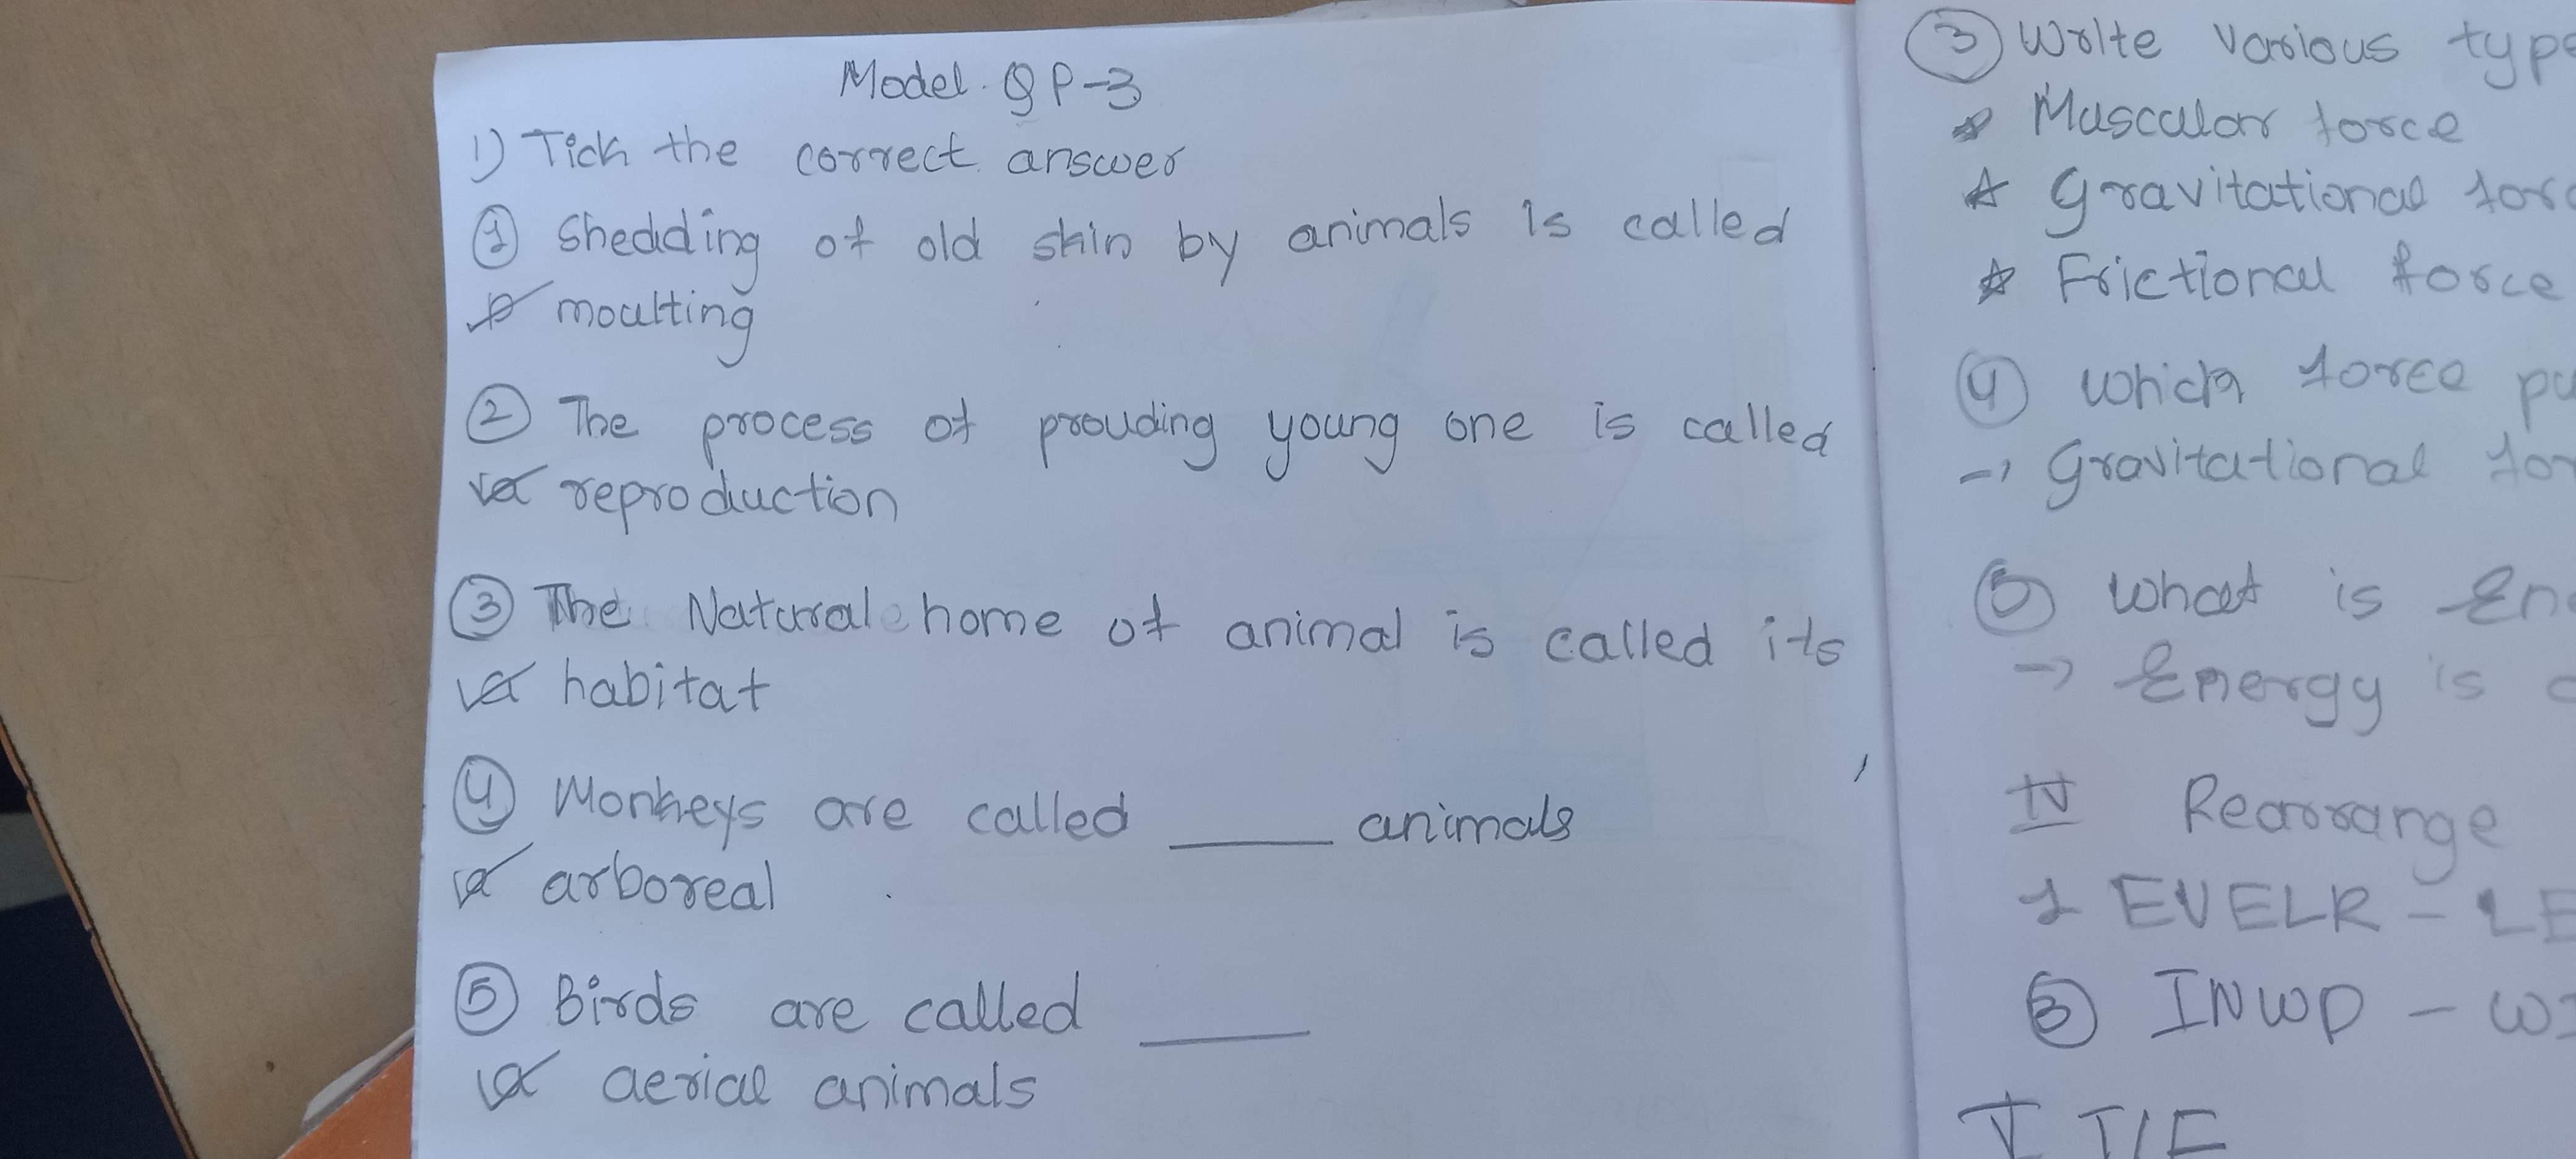 Model. QP-3
1) Tick the correct answer
① Shedding of old skin by animals is called
moulting
② The process of prouding young one is called
reproduction
③ The Natural home of animal is called its
habitat
④ Monkeys are called ____ animals
arboreal
⑤ Birds are called ____
aerial animals
③ Write various type
☆ Muscular force
☆ Gravitational forc
☆ Frictional force
④ Which force pu
→ Gravitational for
⑤ What is Ene
→ Energy is
IV Rearrange
1 EVELR - LE
③ INWD - WI
V T/F